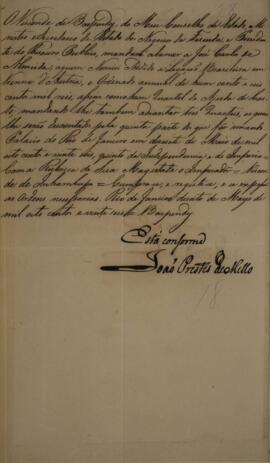 O Visconde de Baependy, do Meu Conselho de Estado, Mi-
nistro e Secretario de Estado dos Negocios da Fazenda, e Presiden-
te do Thesouro Publico, mandará abonar a José Carlos de
Almeida, a quem Nomeei Addido a Legação Brasileira em
na Corte d'Austria, o Ordenado annual de hum conto e seis
centos mil reis, assim como hum Quartel de Ajuda de Cus-
to, mandando-lhe tambem adiantar dous Quarteis, os quaes
lhe serão descontados pela quinta parte do que for vencendo
Palacio do Rio de Janeiro em de Maio de mil
oito cento e vinte seis, quinto da Independencia, e do Imperio =
Com a Rubrica de Sua Magestade o Imperador = Viscon-
de de Inhambupe = Cumpra-se, e registe-se, e se expeção
as Ordens necessarias. Rio de Janeiro de Maio de
mil oito cento e vinte seis = Baependy
Está conforme
João Prestes de Mello
18